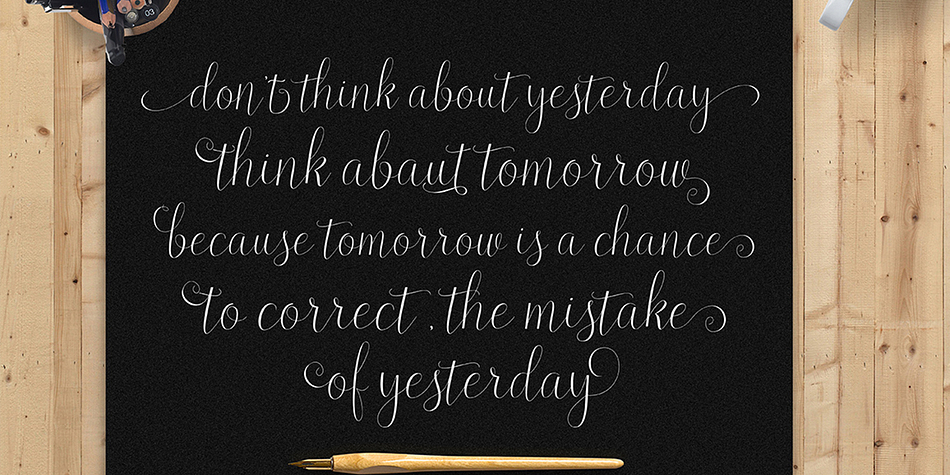 03
don't think about yesterday
think abaut tomorrow
because tomorrow is a chance
to correct . the mistake
of yesterday